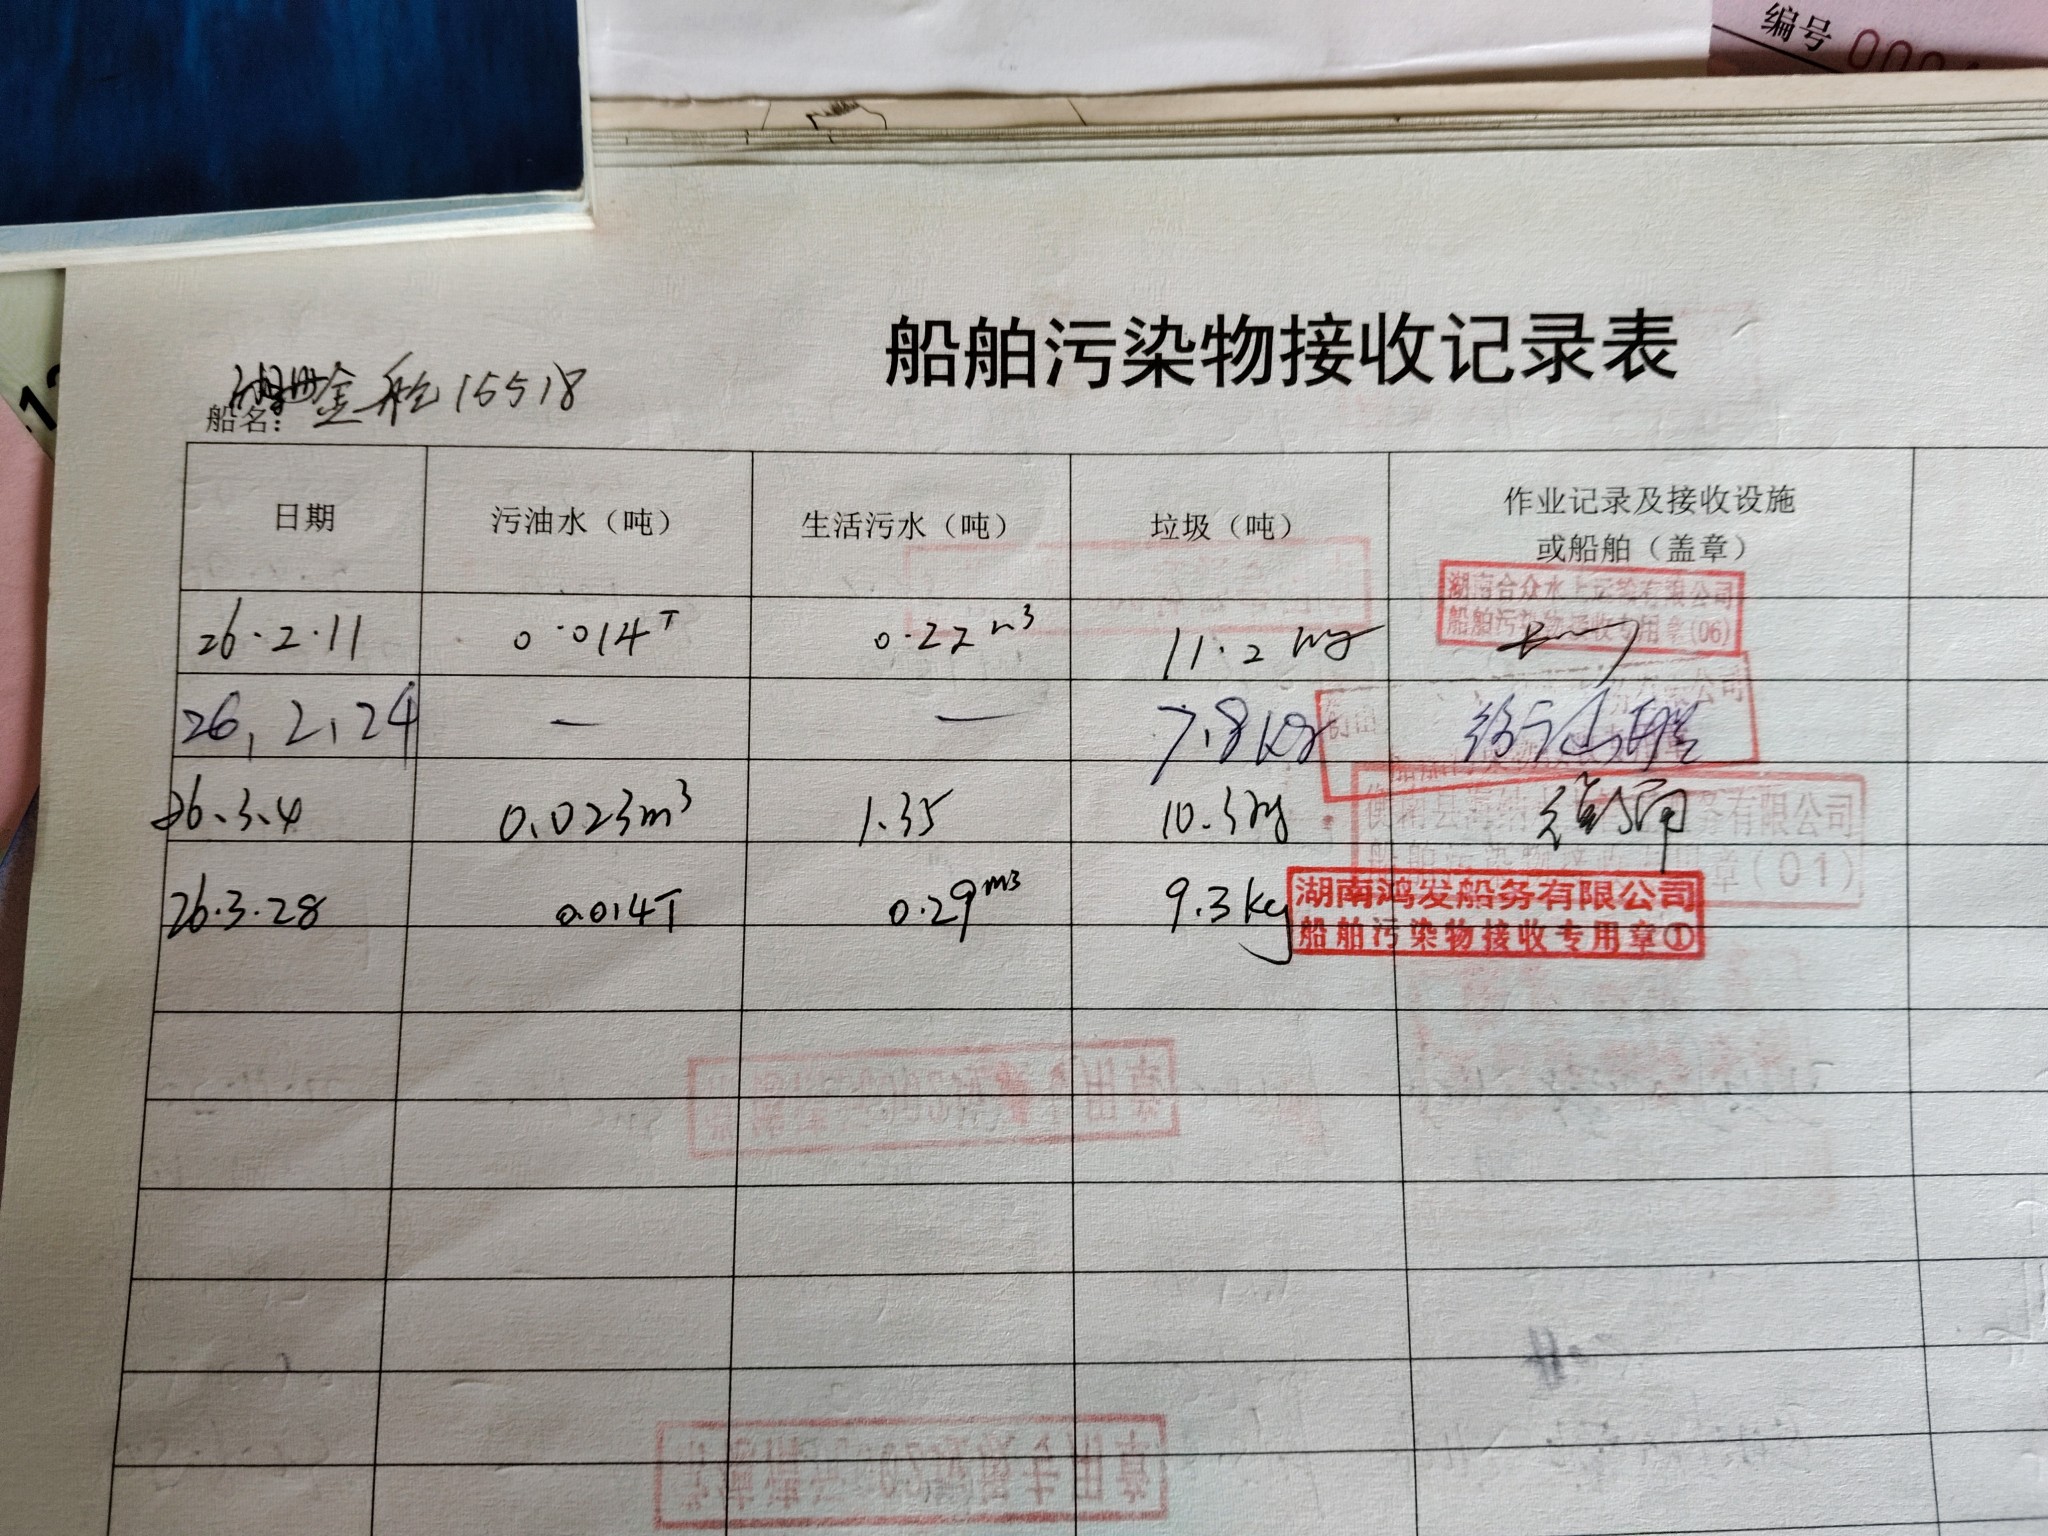 编号 000
船舶污染物接收记录表
船名: 金舱15518
日期 污油水（吨） 生活污水（吨） 垃圾（吨） 作业记录及接收设施
或船舶（盖章）
湖南合众水上运输有限公司
船舶污染物接收专用章(06)
26.2.11 0.014T 0.22m³ 11.2kg
26,2,24 — — 7.8Kg
26.3.4 0.023m³ 1.35 10.3kg
务有限公司
章(01)
26.3.28 0.014T 0.29m³ 9.3kg
湖南鸿发船务有限公司
船舶污染物接收专用章①